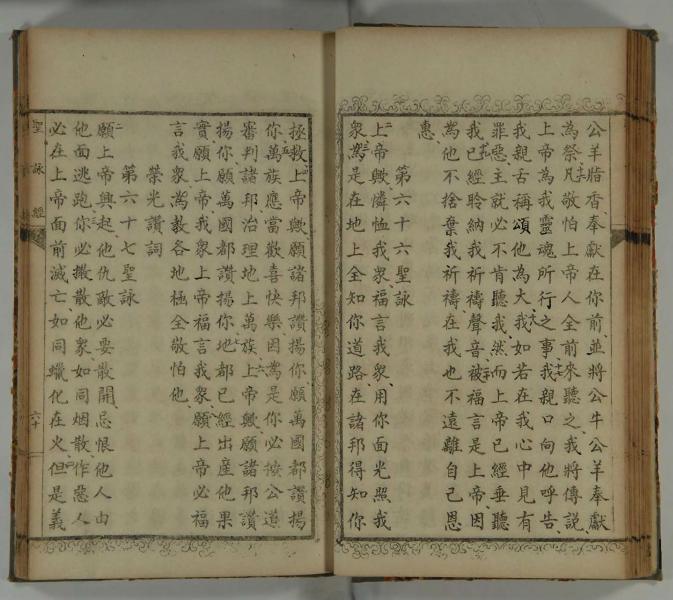 公羊脂香、奉獻在你前、並將公牛公羊奉獻
為祭、十六凡敬怕上帝人全前來聽之、我將傳說
上帝為我靈魂所行之事、十七我親口向他呼告、
我親舌稱頌他為大、十八我如若在我心中見有
罪惡、主就必不肯聽我、十九然而上帝已經垂聽
我、已經聆納我祈禱聲音、二十被福言是上帝、因
為他不捨棄我祈禱、在我也不遠離自己恩
惠、
第六十六聖詠
二上帝歟、憐恤我眾、福言我眾、用你面光照我
眾、三為是在地上全知你道路、在諸邦得知你
拯救、四上帝歟、願諸邦讚揚你、願萬國都讚揚
你、五萬族應當歡喜快樂、因為是你必按公道
審判諸邦、治理地上萬族、六上帝歟、願諸邦讚
揚你、願萬國都讚揚你、七地都已經出産他果
實、願上帝、我眾上帝福言我眾、八願上帝必福
言我眾、為教各地極全敬怕他、
榮光讚詞
第六十七聖詠
二願上帝興起、他仇敵必要散開、忌恨他人由
他面逃跑、三你必撒散他眾、如同烟散、作惡人
必在上帝面前滅亡、如同蠟化在火、四但是義
聖詠經
六十